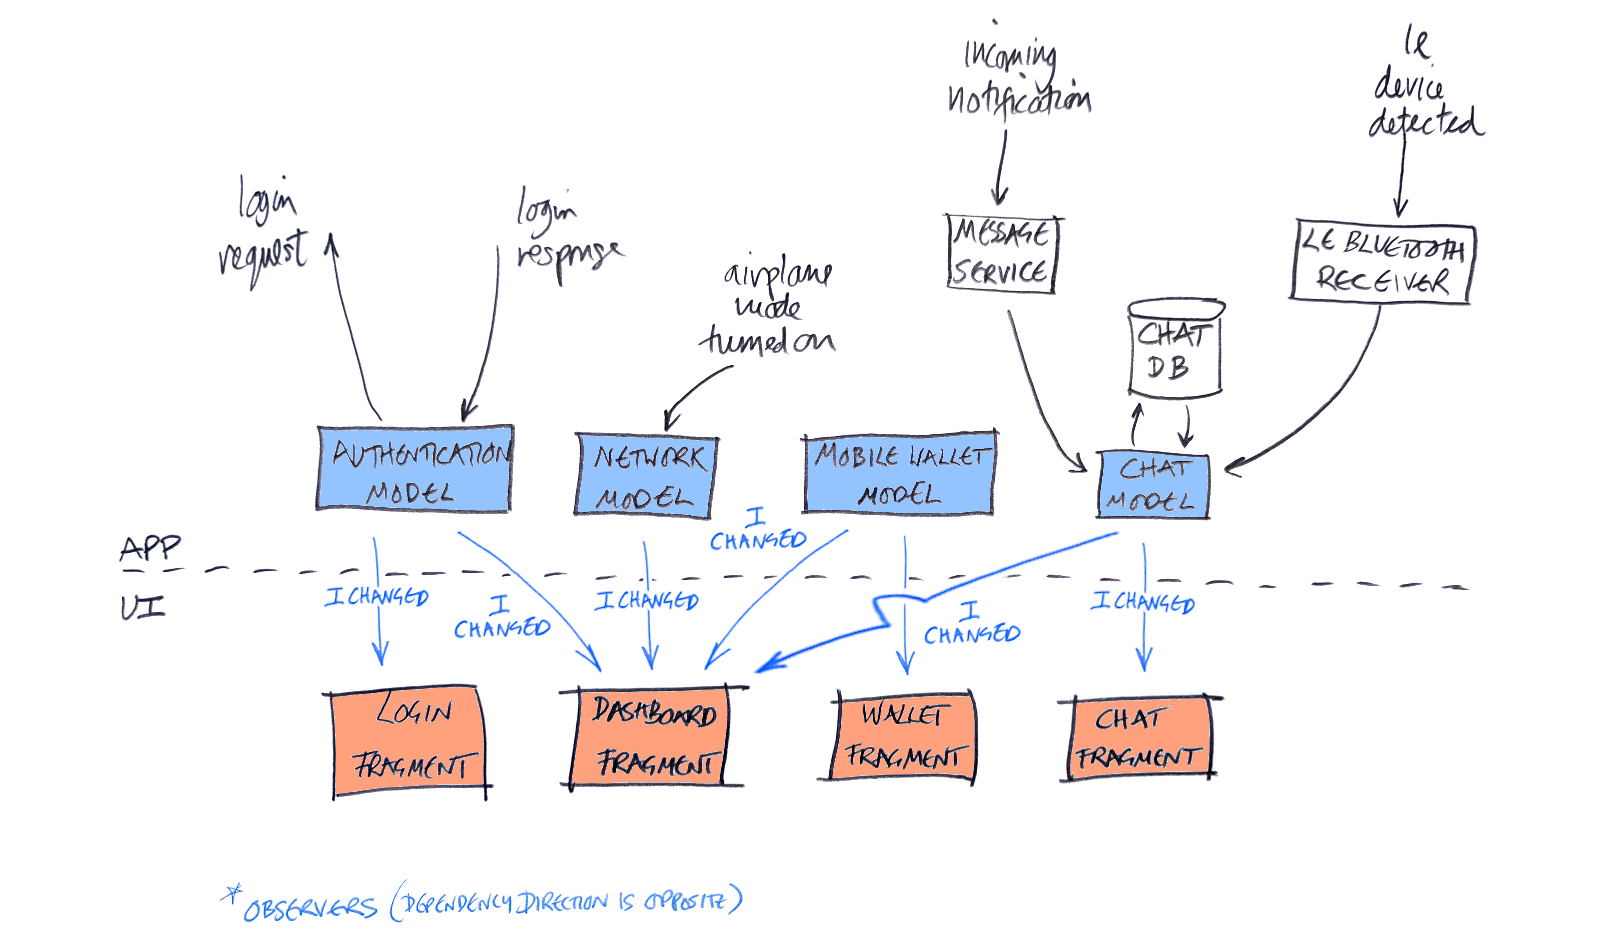 incoming
notification
le
device
detected
login
request
login
response
airplane
mode
turned on
MESSAGE
SERVICE
LE BLUETOOTH
RECEIVER
CHAT
DB
AUTHENTICATION
MODEL
NETWORK
MODEL
MOBILE WALLET
MODEL
CHAT
MODEL
I
CHANGED
APP
UI
I CHANGED
I
CHANGED
I CHANGED
I
CHANGED
I CHANGED
LOGIN
FRAGMENT
DASHBOARD
FRAGMENT
WALLET
FRAGMENT
CHAT
FRAGMENT
* OBSERVERS (DEPENDENCY DIRECTION IS OPPOSITE)